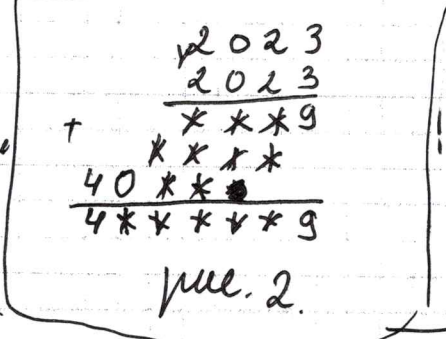 2023
2023
***9
+
****
40**
4*****9
рис. 2.